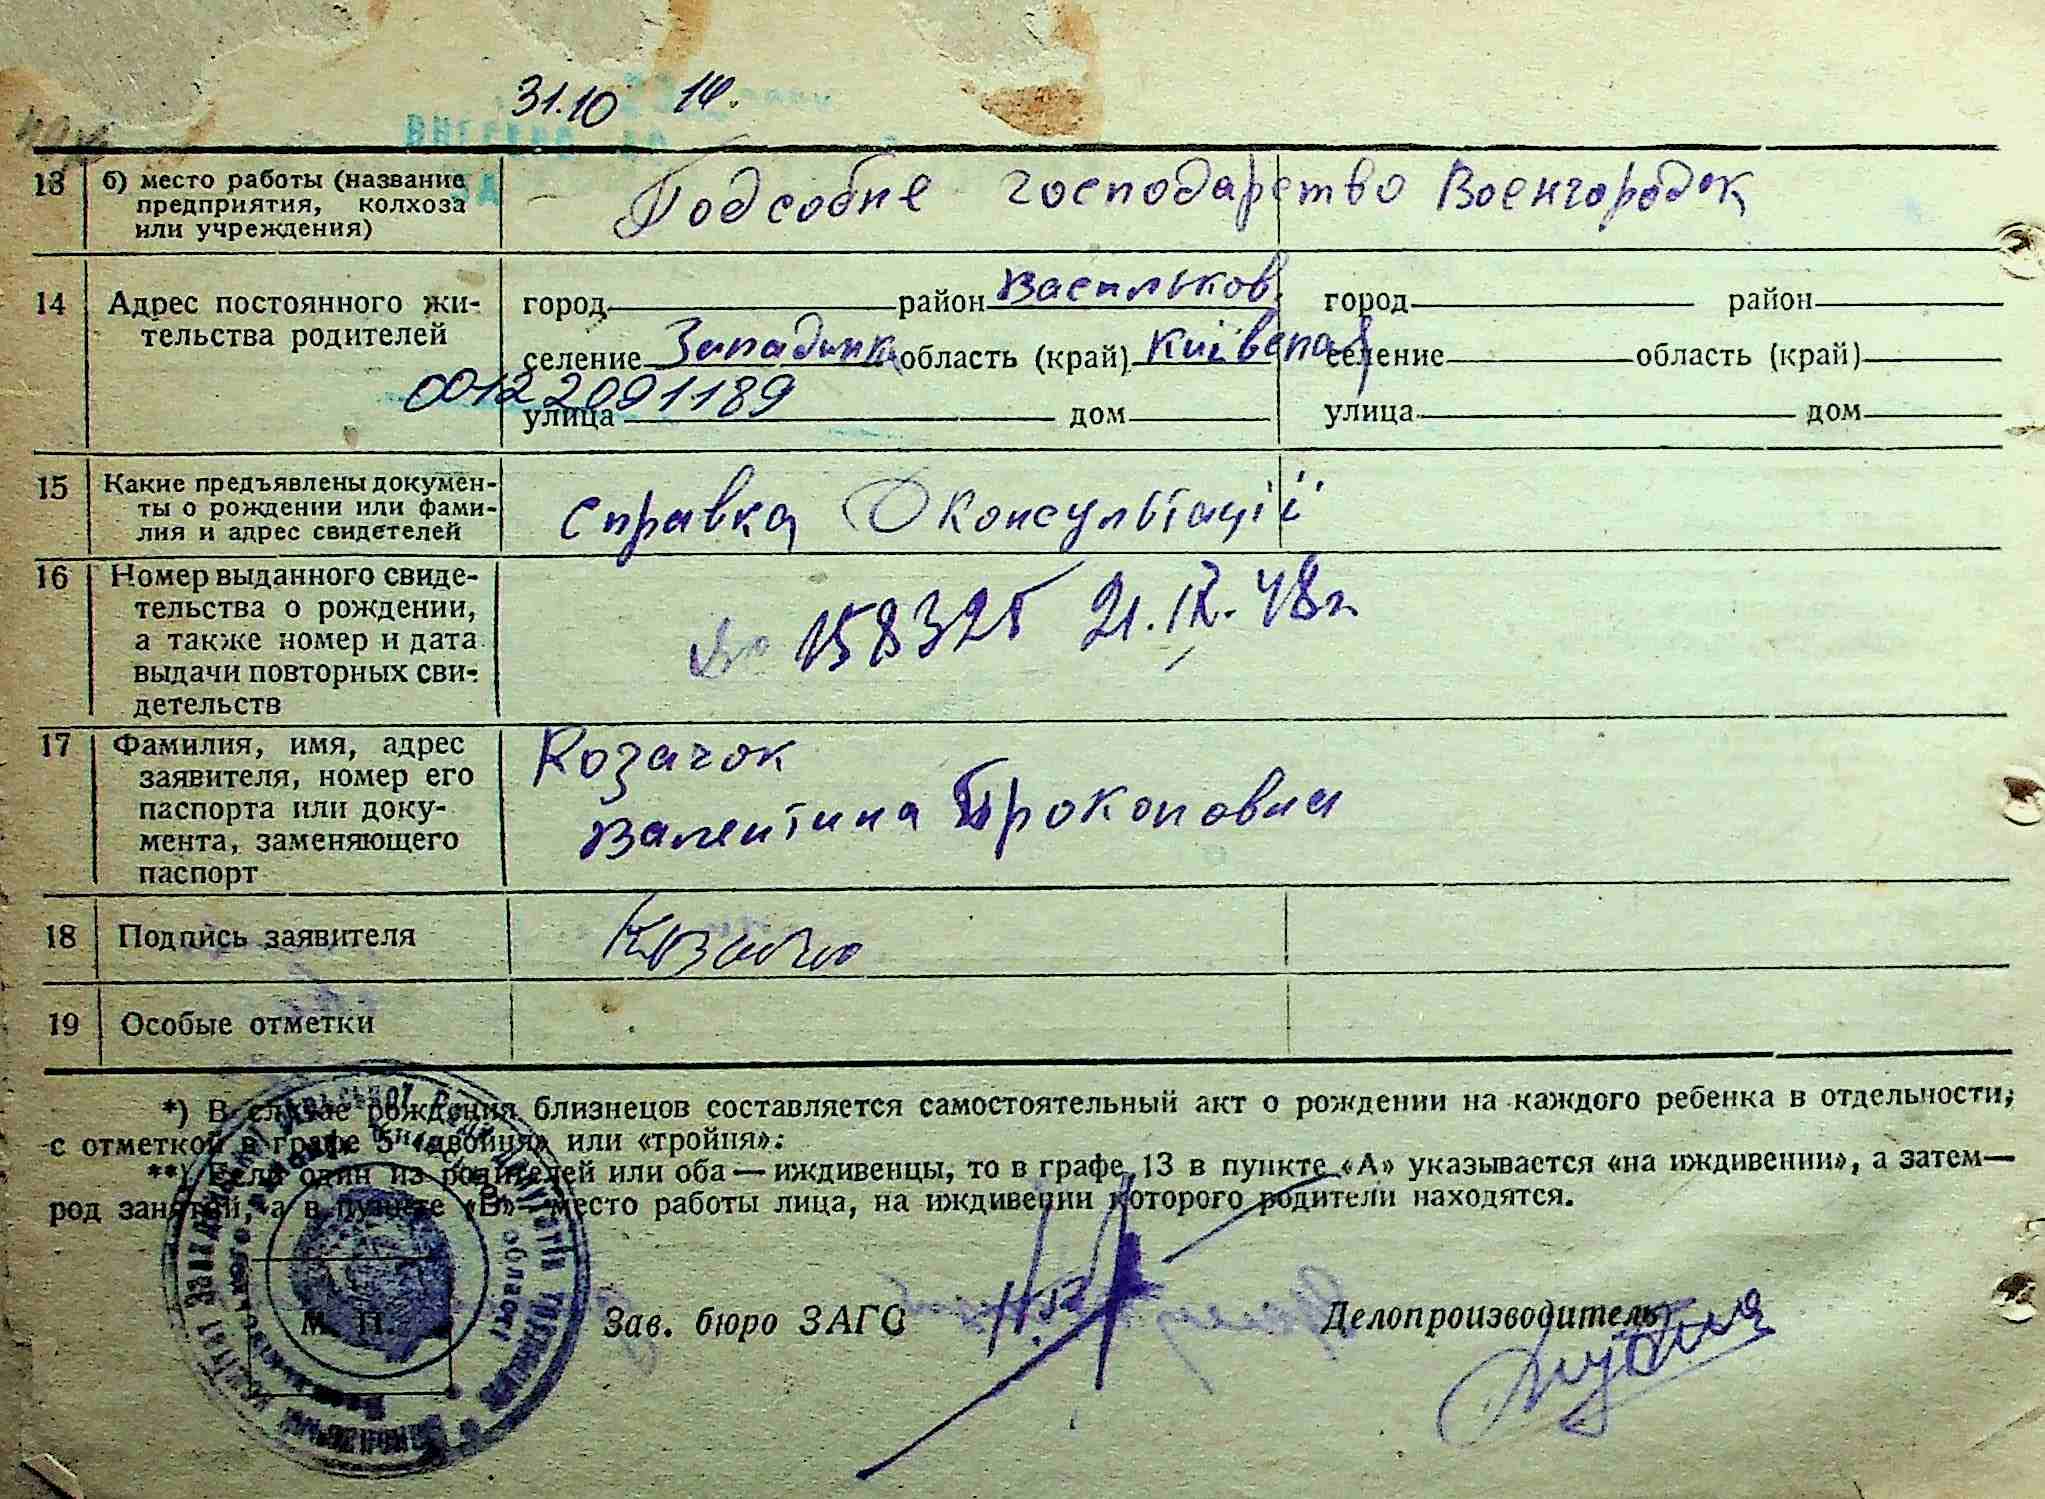 31.10 14.
13 б) место работы (название предприятия, колхоза или учреждения) Подсобне господарство Военгородок
14 Адрес постоянного жительства родителей
город район Васильков. город район
селение Западинка область (край) Київська селение область (край)
00122091189
улица дом улица дом
15 Какие предъявлены документы о рождении или фамилия и адрес свидетелей справка Консультації
16 Номер выданного свидетельства о рождении, а также номер и дата выдачи повторных свидетельств 158325 21.IX.48г
17 Фамилия, имя, адрес заявителя, номер его паспорта или документа, заменяющего паспорт Козачок
Валентина Прокоповна
18 Подпись заявителя
19 Особые отметки
*) В случае рождения близнецов составляется самостоятельный акт о рождении на каждого ребенка в отдельности,
с отметкой в графе 5 «двойня» или «тройня».
**) Если один из родителей или оба — иждивенцы, то в графе 13 в пункте «А» указывается «на иждивении», а затем—
род занятий, а в пункте «Б» место работы лица, на иждивении которого родители находятся.
М. П. Зав. бюро ЗАГС Делопроизводитель